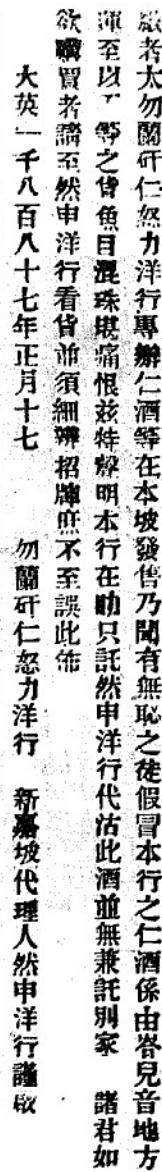 啟者太勿蘭矸仁怒力洋行專辦仁酒等在本坡發售乃聞有無恥之徒假冒本行之仁酒係由峇兒音地方
運至以丁等之貨魚目混珠堪痛恨茲特聲明本行在叻只託然申洋行代沽此酒並無兼託別家 諸君如
欲購買者請至然申洋行看貨並須細辨招牌庶不至誤此佈
大英一千八百八十七年正月十七 勿蘭矸仁怒力洋行 新嘉坡代理人然申洋行謹啟